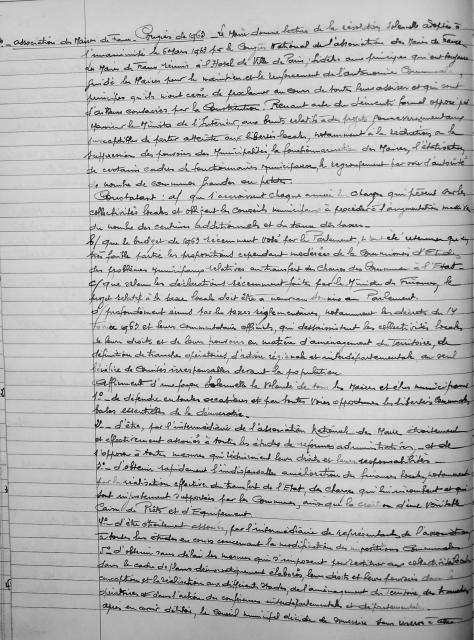 Association des Maires de France. Congrès de 1963 - Le Maire donne lecture de la résolution solennelle adoptée à
l'unanimité le 6 mars 1963 par le Congrès National de l'association des Maires de France
Les Maires de France réunis à l'Hôtel de Ville de Paris, fidèles aux principes qui ont toujours
guidé les Maires pour le maintien et le renforcement de l'autonomie Communale
principes qu'ils n'ont cessé de proclamer au cours de toutes leurs assises et qui sont
d'ailleurs consacrés par la Constitution. Prenant acte du démenti formel opposé par
Monsieur le Ministre de l'Intérieur, aux bruits relatifs à des projets gouvernementaux
susceptibles de porter atteinte aux libertés locales, notamment à la réduction ou la
suppression des pouvoirs des Municipalités, la fonctionnarisation des Maires, l'étatisation
de certains cadres de fonctionnaires municipaux, le regroupement par voie d'autorité
de nombre de communes grandes ou petites
Constatant : a/ que s'accroissent chaque année les charges qui pèsent sur les
collectivités locales et obligent les Conseils municipaux à procéder à l'augmentation
du nombre des centimes additionnels et du taux des taxes -
b/ que le budget de 1963 récemment voté par le Parlement, n'ait été retenu que
très faible partie les propositions cependant modérées de la Commission d'Etudes
des problèmes municipaux relatives au transfert de Charges des Communes à l'Etat
c/ que selon les déclarations récemment faites par le Ministre des Finances, le
projet relatif à la taxe locale doit être à nouveau soumis au Parlement.
d/ profondément émus par les textes réglementaires, notamment les décrets du 14
mars 1963 et leurs commentaires officiels, qui dessaisissent les collectivités locales
de leurs droits et de leurs pouvoirs en matière d'aménagement du Territoire, de
définition de tranches opératoires, d'action régionale et interdépartementale au seul
bénéfice de Comités irresponsables devant la population
Affirment d'une façon solennelle la Volonté de tous les Maires et élus municipaux
1° - de défendre en toutes occasions et par toutes voies opportunes les libertés Communales
bases essentielles de la démocratie.
2 - d'être, par l'intermédiaire de l'association Nationale des Maires étroitement
et effectivement associés à toutes les études de réformes administratives, et de
s'opposer à toutes mesures qui lèsent leurs droits et leurs responsabilités
3° - d'obtenir rapidement l'indispensable amélioration des finances locales, notamment
par la réalisation effective du transfert de l'Etat, des charges qui lui incombent et qui
sont injustement supportées par les Communes, ainsi que la création d'une véritable
Caisse de Prêts et d'Equipement.
4° - d'être étroitement associés, par l'intermédiaire de représentants de l'association
à toutes les études en cours concernant la modification des impositions Communales
5° - d'obtenir sans délai les mesures qui s'imposent pour restituer aux collectivités locales
dans le cadre de plans démocratiquement élaborés, leurs droits et leurs pouvoirs dans la
conception et la réalisation aux différents stades, de l'aménagement du Territoire des tranches
opératoires et dans l'action des conférences interdépartementales et départementales.
Après en avoir délibéré, le Conseil municipal décide de